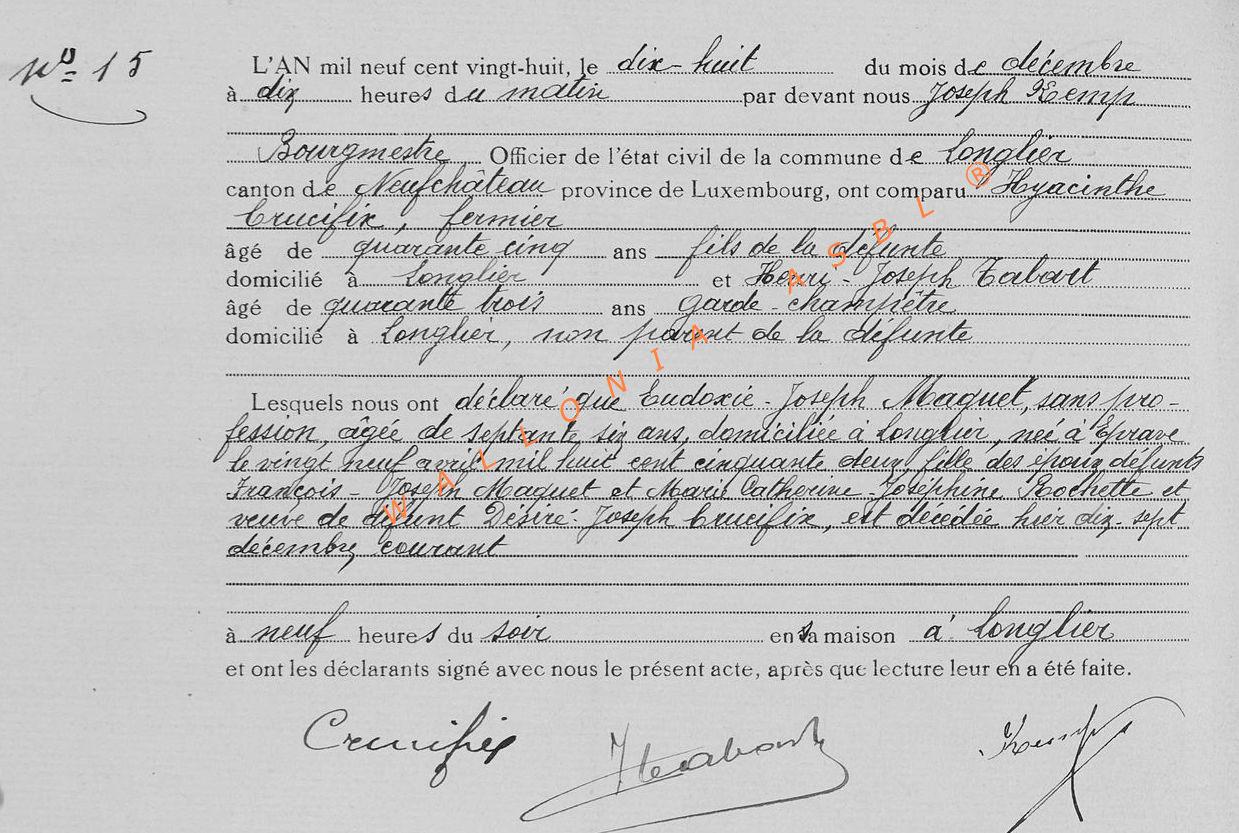 Nº 15
L'AN mil neuf cent vingt-huit, le dix-huit du mois de décembre
à dix heures du matin par devant nous Joseph Kemp
Bourgmestre, Officier de l'état civil de la commune de Longlier
canton de Neufchâteau province de Luxembourg, ont comparu Hyacinthe
Crucifix, fermier
âgé de quarante cinq ans fils de la défunte
domicilié à Longlier et Henri-Joseph Tabart
âgé de quarante trois ans garde-champêtre
domicilié à Longlier, non parent de la défunte
Lesquels nous ont déclaré que Eudoxie-Joseph Maquet, sans pro-
fession, âgée de septante six ans, domiciliée à Longlier, née à Eprave
le vingt neuf avril mil huit cent cinquante deux, fille des époux défunts
François-Joseph Maquet et Marie Catherine-Joséphine Rochette et
veuve de défunt Désiré-Joseph Crucifix, est décédée hier dix-sept
décembre courant
à neuf heures du soir en sa maison à Longlier
et ont les déclarants signé avec nous le présent acte, après que lecture leur en a été faite.
Crucifix HTabart Kemp
WALLONIA ASBL ®